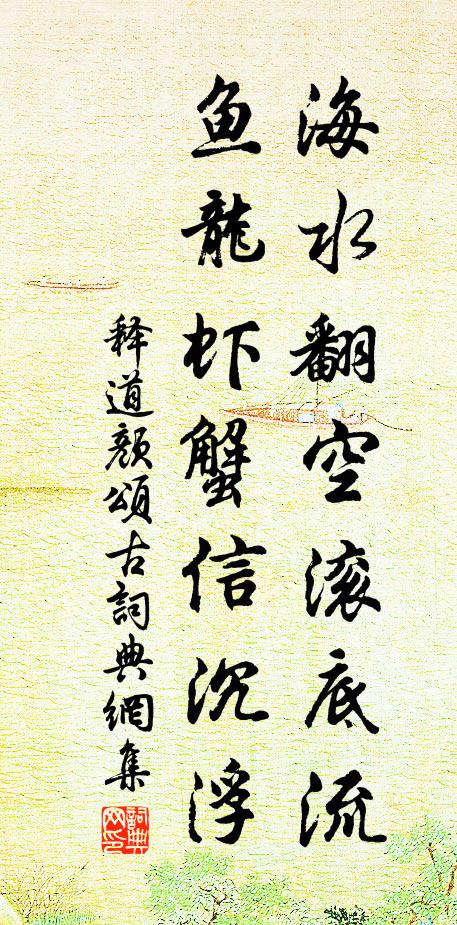 海水翻空滚底流
鱼龍虾蟹信沉浮
释道颜頌古詞典網集
詞典網印